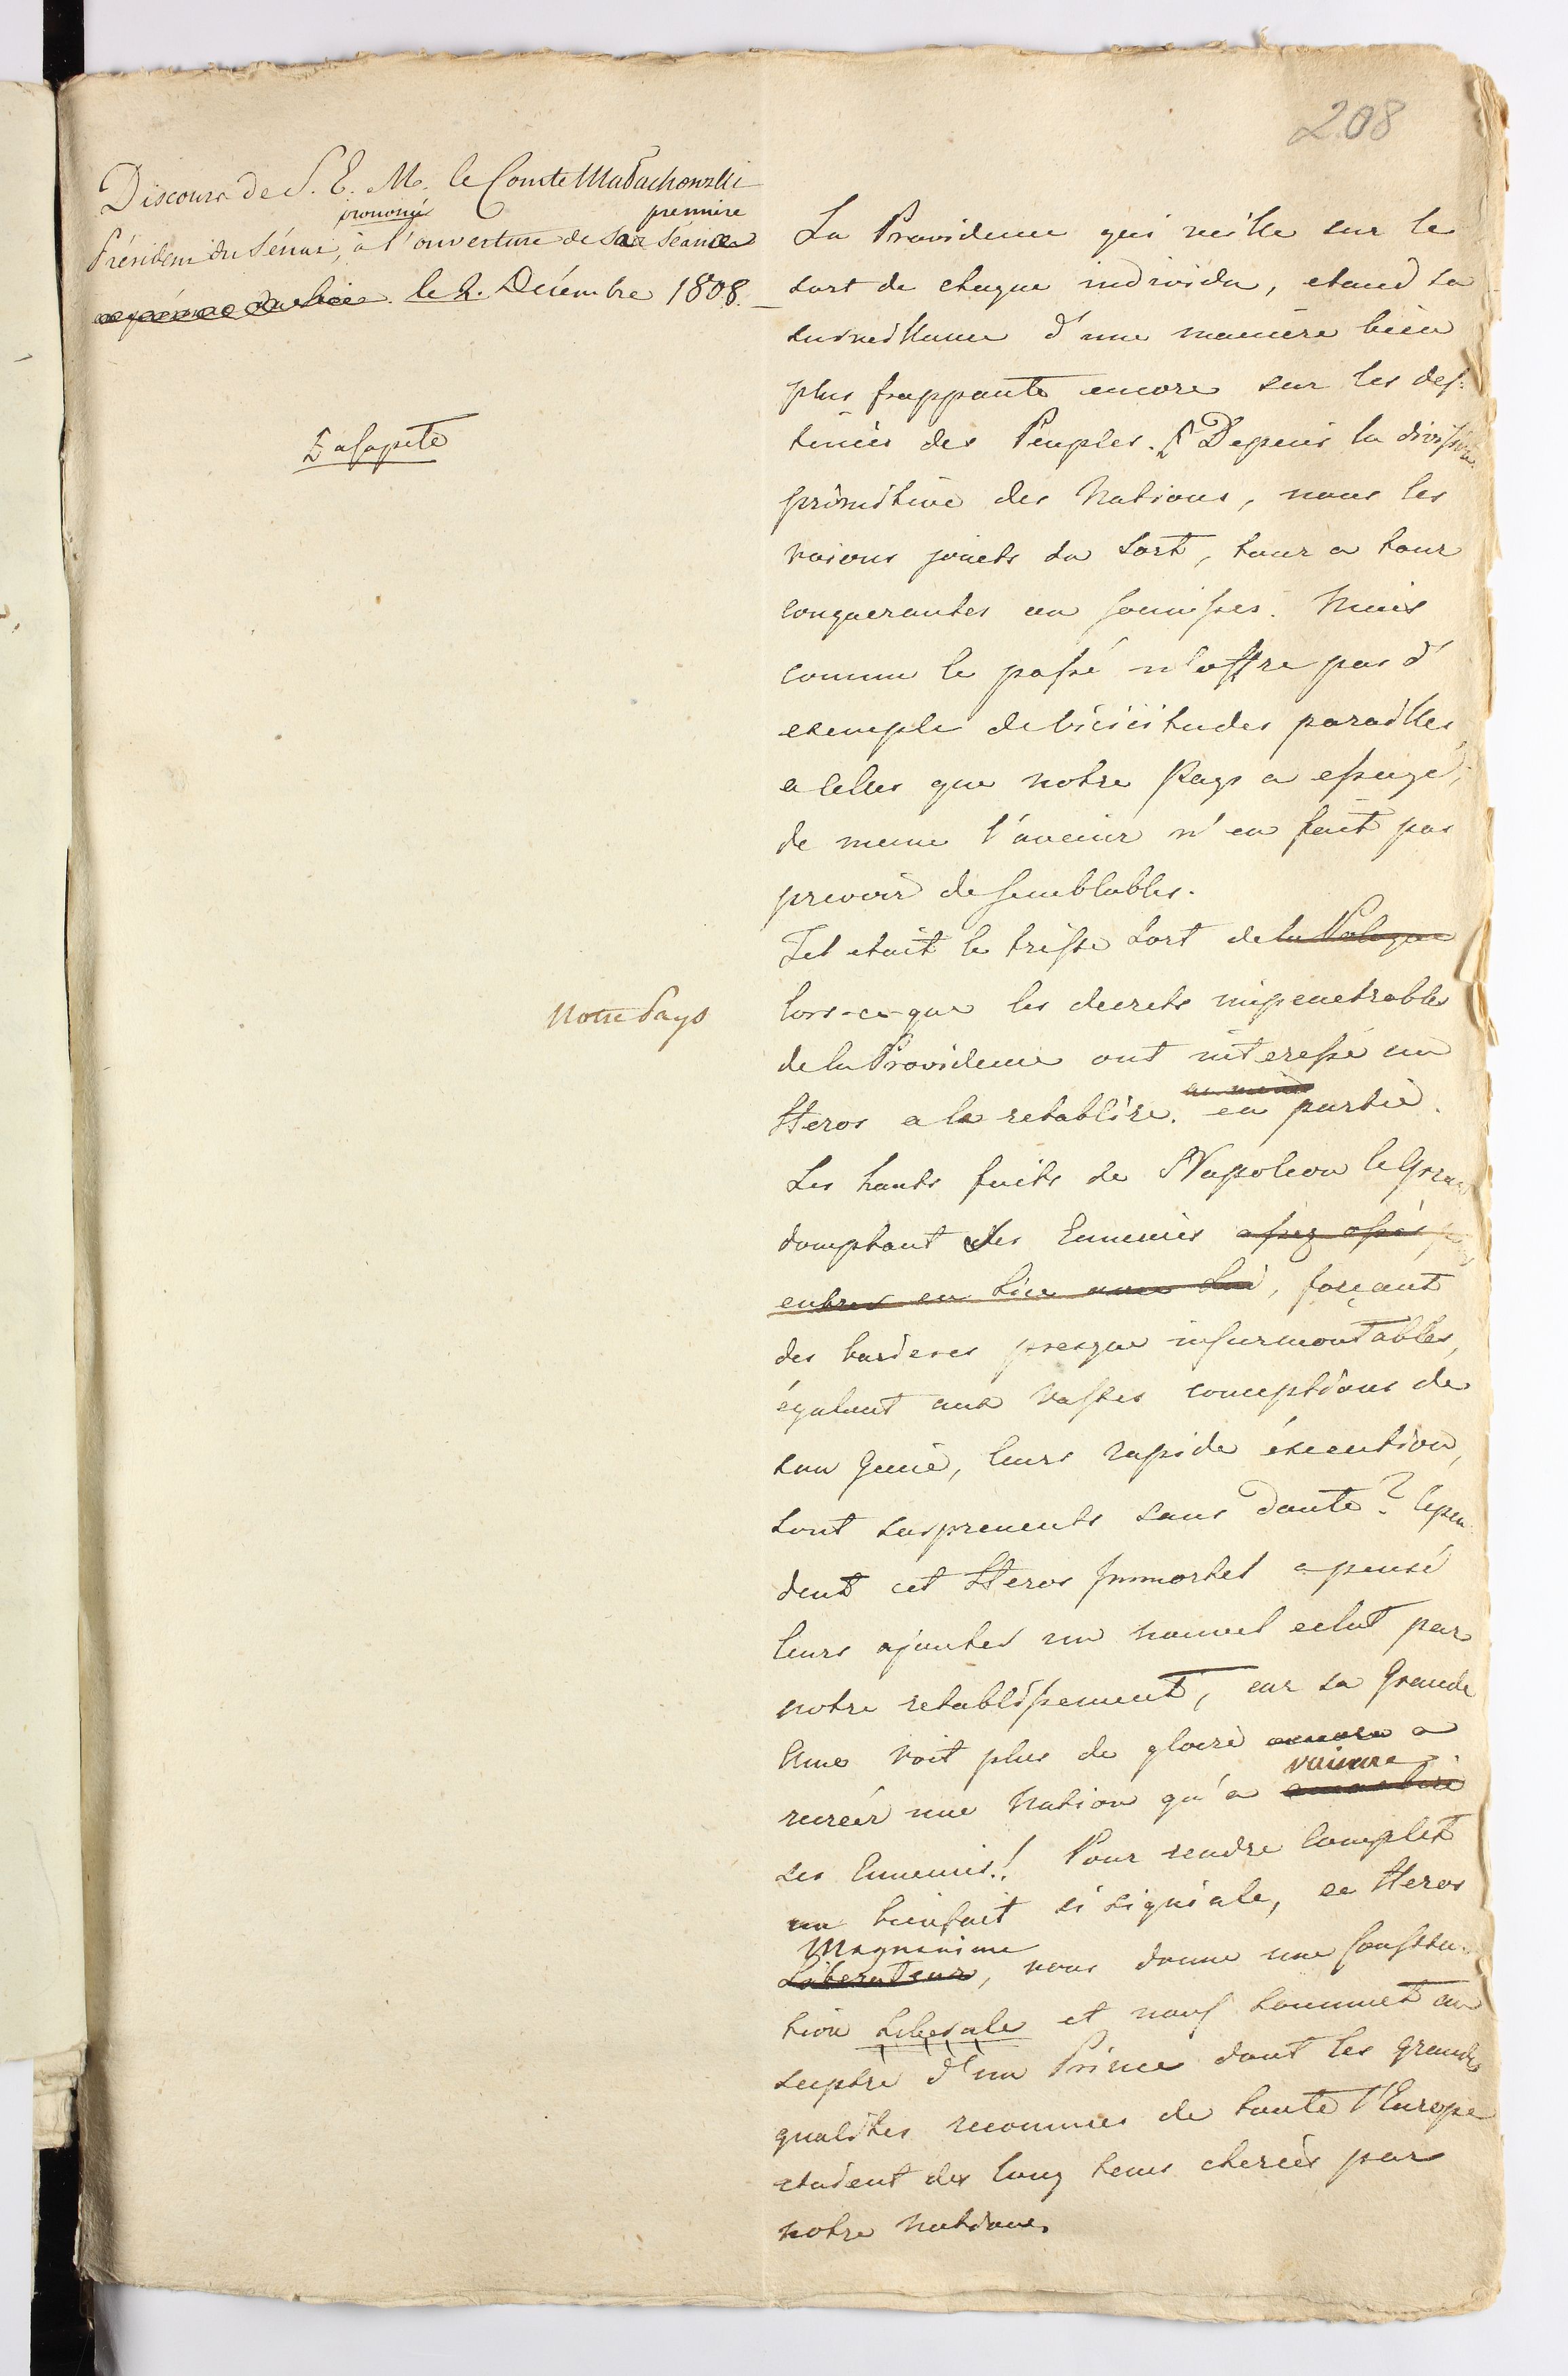 208
Discours de S. E. M. le Comte Małachowski
prononcé première
Président du Sénat, à l'ouverture de sa Séance
le 2. Decémbre 1808.
Notre Pays
La Providence qui veille sur le
sort de chaque individu, etend sa
surveillance d'une manière bien
plus frappante encore sur les des-
tinées des Peuples. Depuis la division
primitive des Nations, nous les
voions jouets du Sort, tour a tour
conquerantes ou soumises. Mais
comme le passé n'offre pas d'
exemple de vicicitudes pareilles
a celles que notre Pays a essuyé,
de meme l'avenir n'en fait pas
prevoir de semblables.
Tel etait le triste Sort de la Pologne
lors-ce-que les decrets impenetrables
de la Providence ont interessé un
au moins
Heros a la retablire. en partie.
Les hauts faits de Napoleon le Grand
domptant des Ennemies assez osés pour
entrer en lice avec lui, forçant
des barieres presque insurmontables,
égalant aux vastes conceptions de
son Genie, leurs rapide éxecution,
sont surprenents sans Doute? Cepen-
dent cet Heros Immortel a pensé
leurs ajouter un nouvel eclat par
notre retablissement, car sa Grande
Ame voit plus de gloire encore a
vaincre
recréer une Nation qu'a
ses Ennemis! Pour rendre Complet
un bienfait si signiale, ce Heros
Magnanime
Liberateur, nous donne une Constitu-
tion Liberale et nous soummet au
sceptre d'un Prince dont les grandes
qualites reconnues de toute l'Europe
etaient des long tems cheries par
notre Nation.